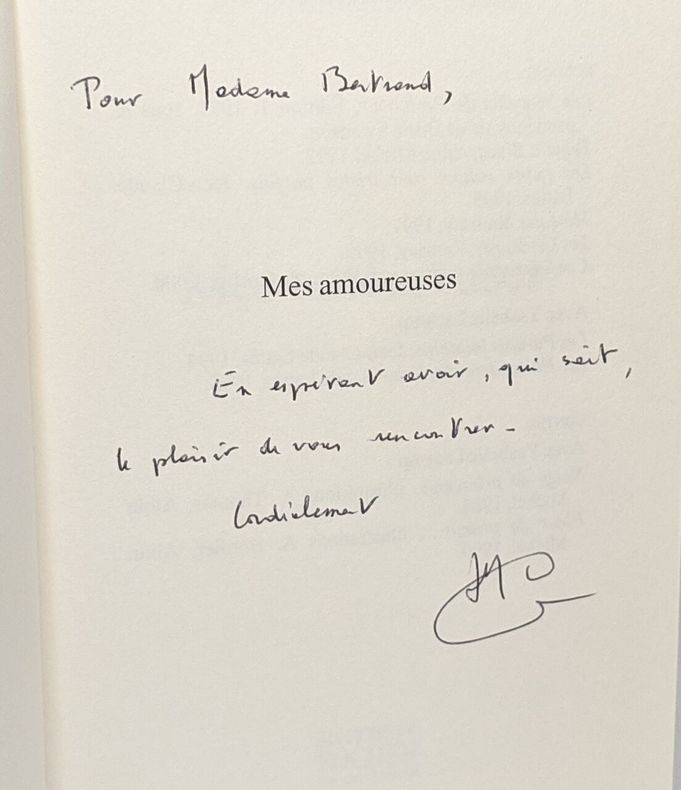 Pour Madame Bertrand,
Mes amoureuses
En espérant avoir, qui sait,
le plaisir de vous rencontrer -
Cordialement